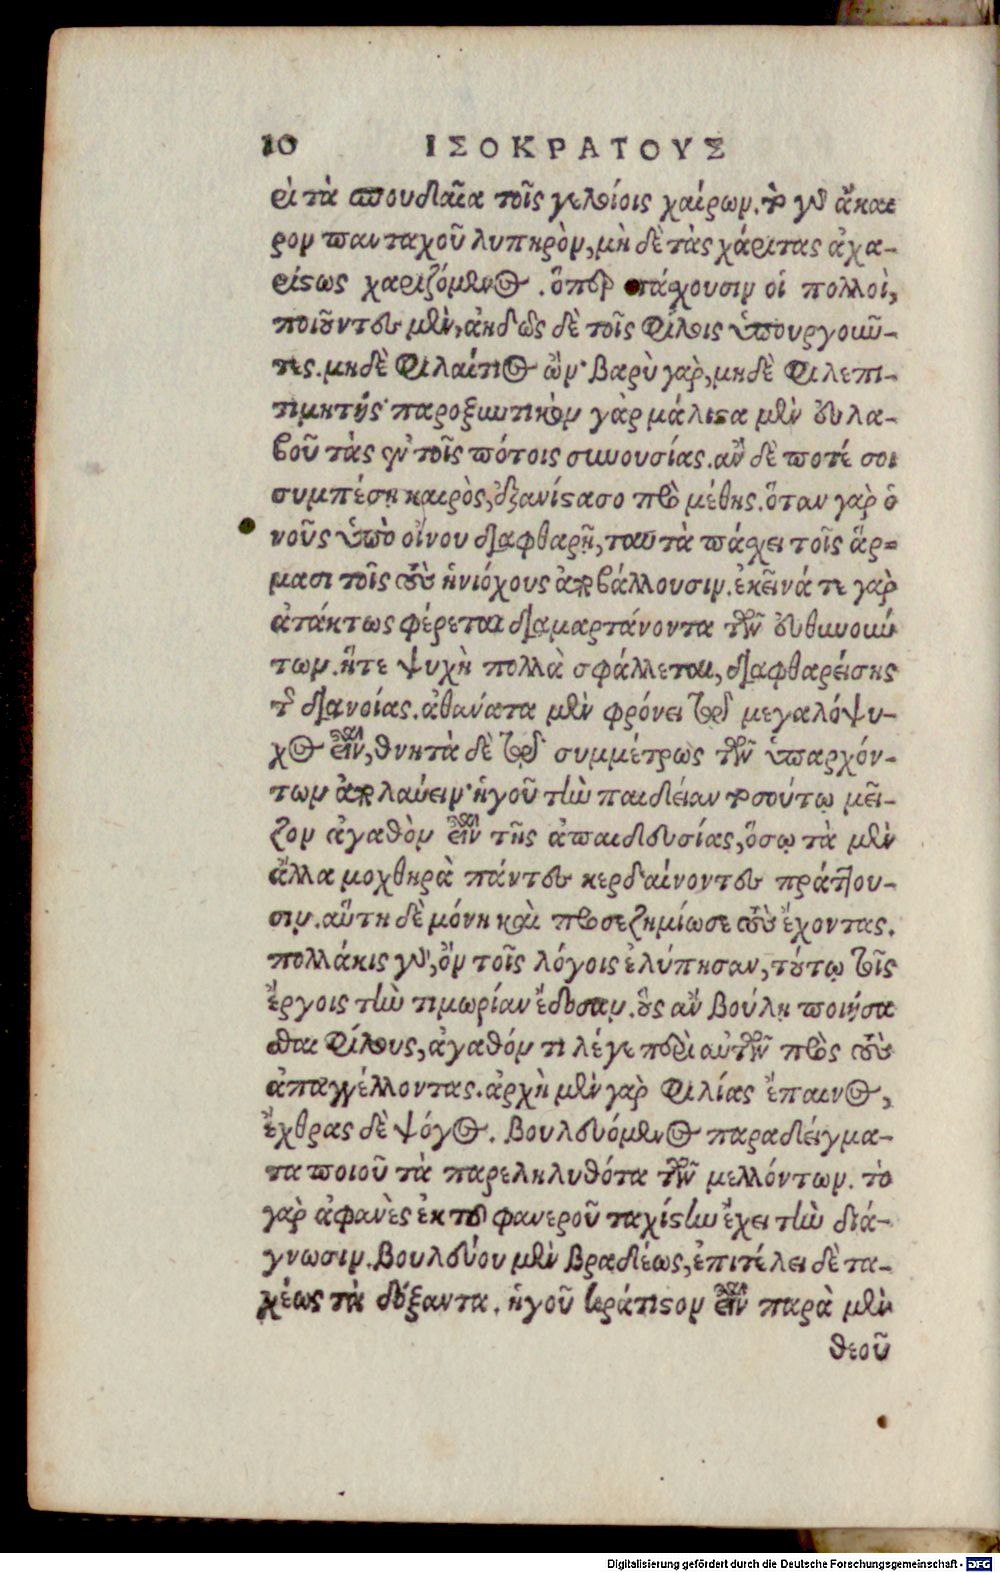 10 ΙΣΟΚΡΑΤΟΥΣ
ρὶ τὰ σπουδαῖα τοῖς γελοίοις χαίρων. τὸ γὰρ ἄκαι
ρον πανταχοῦ λυπηρὸν, μὴ δὲ τὰς χάριτας ἀχα-
ρίστως χαριζόμενος. ὅπερ πάσχουσιν οἱ πολλοὶ,
ποιοῦντες μὲν, ἀηδῶς δὲ τοῖς φίλοις ὑπουργοῦν-
τες. μηδὲ φιλαίτιος ὢν· βαρὺ γὰρ, μηδὲ φιλεπι-
τιμητής· παροξυντικὸν γὰρ μάλιστα μὲν εὐλα-
βοῦ τὰς ἐν τοῖς πότοις συνουσίας. ἂν δὲ ποτέ σοι
συμπέσῃ καιρὸς, ἐξανίστασο πρὸ μέθης. ὅταν γὰρ ὁ
νοῦς ὑπὸ οἴνου διαφθαρῇ, ταυτὰ πάσχει τοῖς ἅρ-
μασι τοῖς τοὺς ἡνιόχους ἀποβάλλουσιν. ἐκεῖνά τε γὰρ
ἀτάκτως φέρεται διαμαρτάνοντα τῶν εὐθυνούν
των. ἥτε ψυχὴ πολλὰ σφάλλεται, διαφθαρείσης
τῆς διανοίας. ἀθάνατα μὲν φρόνει τῷ μεγαλόψυ-
χος εἶναι, θνητὰ δὲ τῷ συμμέτρως τῶν ὑπαρχόν-
των ἀπολαύειν· ἡγοῦ τὴν παιδείαν τοσούτῳ μεῖ-
ζον ἀγαθὸν εἶναι τῆς ἀπαιδευσίας, ὅσῳ τὰ μὲν
ἄλλα μοχθηρὰ πάντες κερδαίνοντες πράττου-
σιν. αὕτη δὲ μόνη καὶ προσεζημίωσε τοὺς ἔχοντας.
πολλάκις γὰρ, ὃν τοῖς λόγοις ἐλύπησαν, τούτῳ τοῖς
ἔργοις τὴν τιμωρίαν ἔδοσαν. οὓς ἂν βούλῃ ποιήσα
σθαι φίλους, ἀγαθόν τι λέγε περὶ αὐτῶν πρὸς τοὺς
ἀπαγγέλλοντας. ἀρχὴ μὲν γὰρ φιλίας ἔπαινος,
ἔχθρας δὲ ψόγος. βουλευόμενος παραδείγμα-
τα ποιοῦ τὰ παρεληλυθότα τῶν μελλόντων. τὸ
γὰρ ἀφανὲς ἐκ τοῦ φανεροῦ ταχίστην ἔχει τὴν διά-
γνωσιν. βουλεύου μὲν βραδέως, ἐπιτέλει δὲ τα-
χέως τὰ δόξαντα. ἡγοῦ κράτιστον εἶναι παρὰ μὲν
θεοῦ
Digitalisierung gefördert durch die Deutsche Forschungsgemeinschaft - DFG